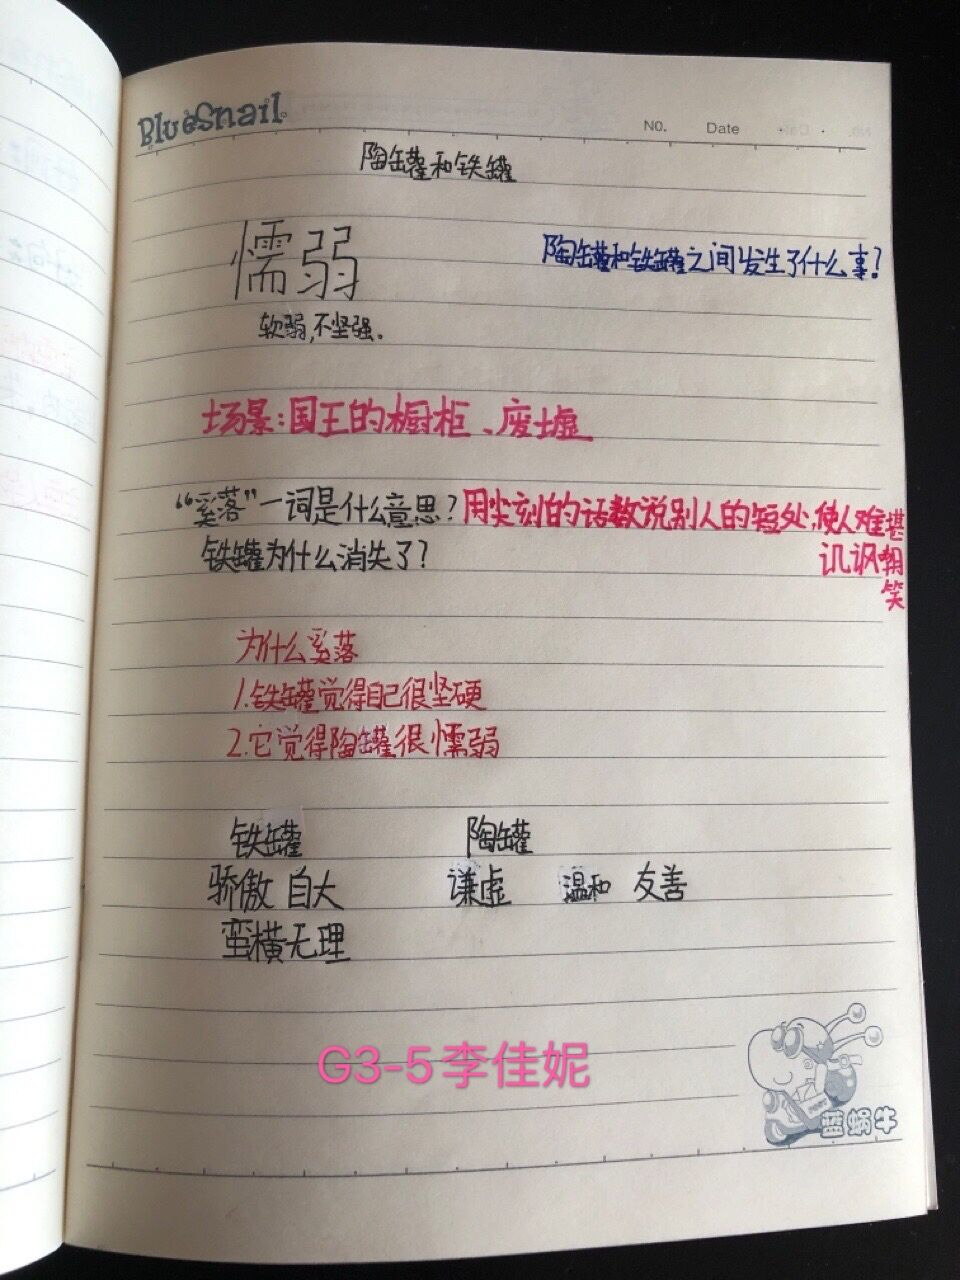 BlueSnail
NO. Date
陶罐和铁罐
懦弱
陶罐和铁罐之间发生了什么事?
软弱,不坚强。
场景:国王的橱柜、废墟
“奚落”一词是什么意思?用尖刻的话数说别人的短处,使人难堪
铁罐为什么消失了?
讥讽嘲笑
为什么奚落
1.铁罐觉得自己很坚硬
2.它觉得陶罐很懦弱
铁罐 陶罐
骄傲 自大 谦虚 温和 友善
蛮横无理
G3-5李佳妮
蓝蜗牛